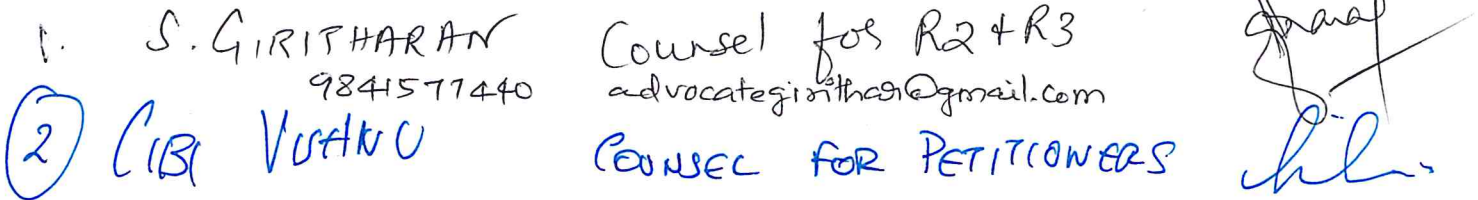 1. S. GIRITHARAN Counsel for R2 & R3
9841577440 advocategirithar@gmail.com
2 CIBI VISHNU COUNSEL FOR PETITIONERS